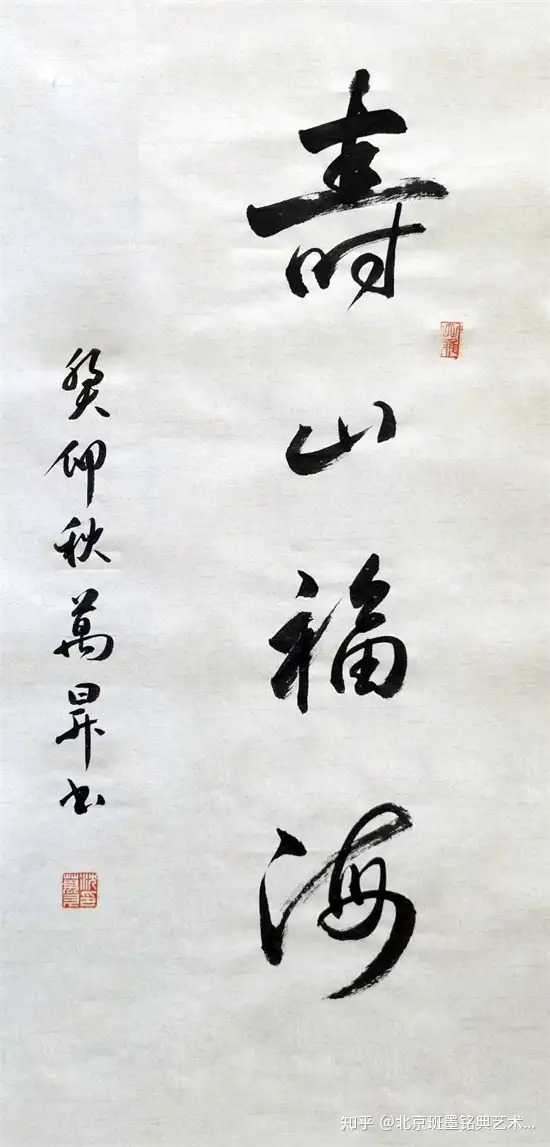 壽山福海
癸卯秋萬昇书
知乎 @北京班墨铭典艺术...